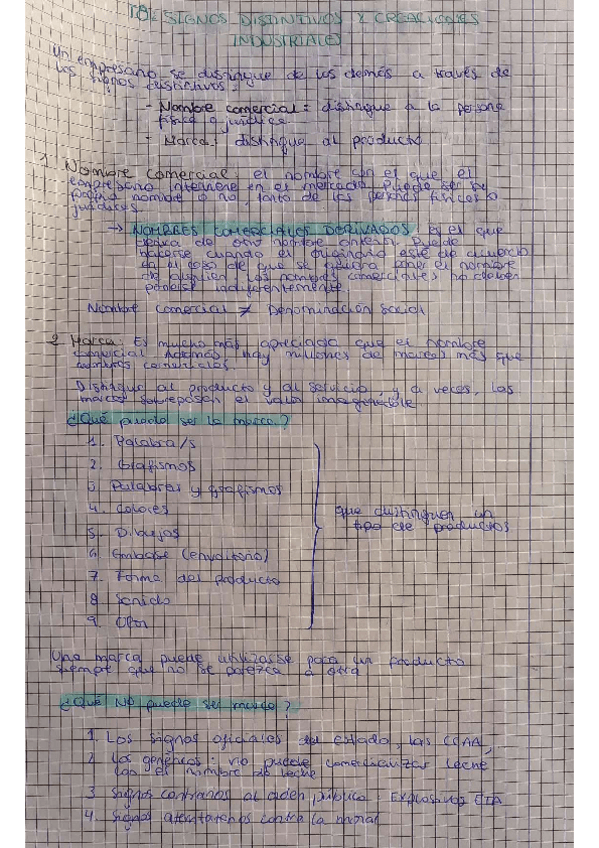 SIGNOS DISTINTIVOS Y CREACIONES
INDUSTRIALES
Un empresario se distingue de los demás a través de
los signos distintivos:
- Nombre comercial: distingue a la persona
física o jurídica
- Marca: distingue al producto
1. Nombre comercial: el nombre con el que el
empresario interviene en el mercado. Puede ser su
nombre o no, tanto de las personas físicas o
jurídicas.
→ NOMBRES COMERCIALES DERIVADOS: es el que
deriva de otro nombre anterior. Puede
hacerse cuando el originario esté de acuerdo
el caso de que se quiera poner el nombre
de alguien. Los nombres comerciales no deben
ponerse indiferentemente
Nombre comercial ≠ Denominación social
2. Marca: Es mucho más apreciada que el nombre
comercial. Además, hay millones de marcas más que
nombres comerciales.
Distingue al producto y al servicio, y a veces, las
marcas sobrepasan el valor imaginable
¿Qué puede ser la marca?
1. Palabra/s
2. Grafismos
3. Palabras y grafismos
4. Colores
5. Dibujos
6. Embase (envoltorio)
7. Forma del producto
8. Sonido
9. Olor
que distinguen un
tipo de productos
Una marca puede utilizarse para un producto
siempre que no se parezca a otra
¿Qué NO puede ser marca?
1. Los signos oficiales del estado, las CCAA,
2. Los genéricos: no puede comercializar leche
con el nombre de leche
3. Signos contrarios al orden público: Explosivos ETA
4. Signos contra la moral